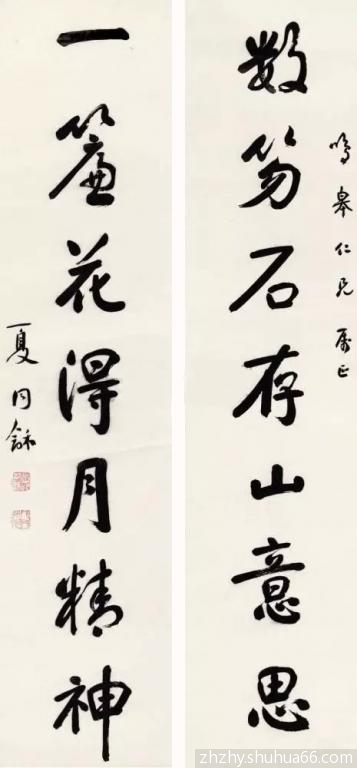 鳴皋仁兄属正
数笏石存山意思
一簾花得月精神
夏同龢
zhzhyshuhua66.com